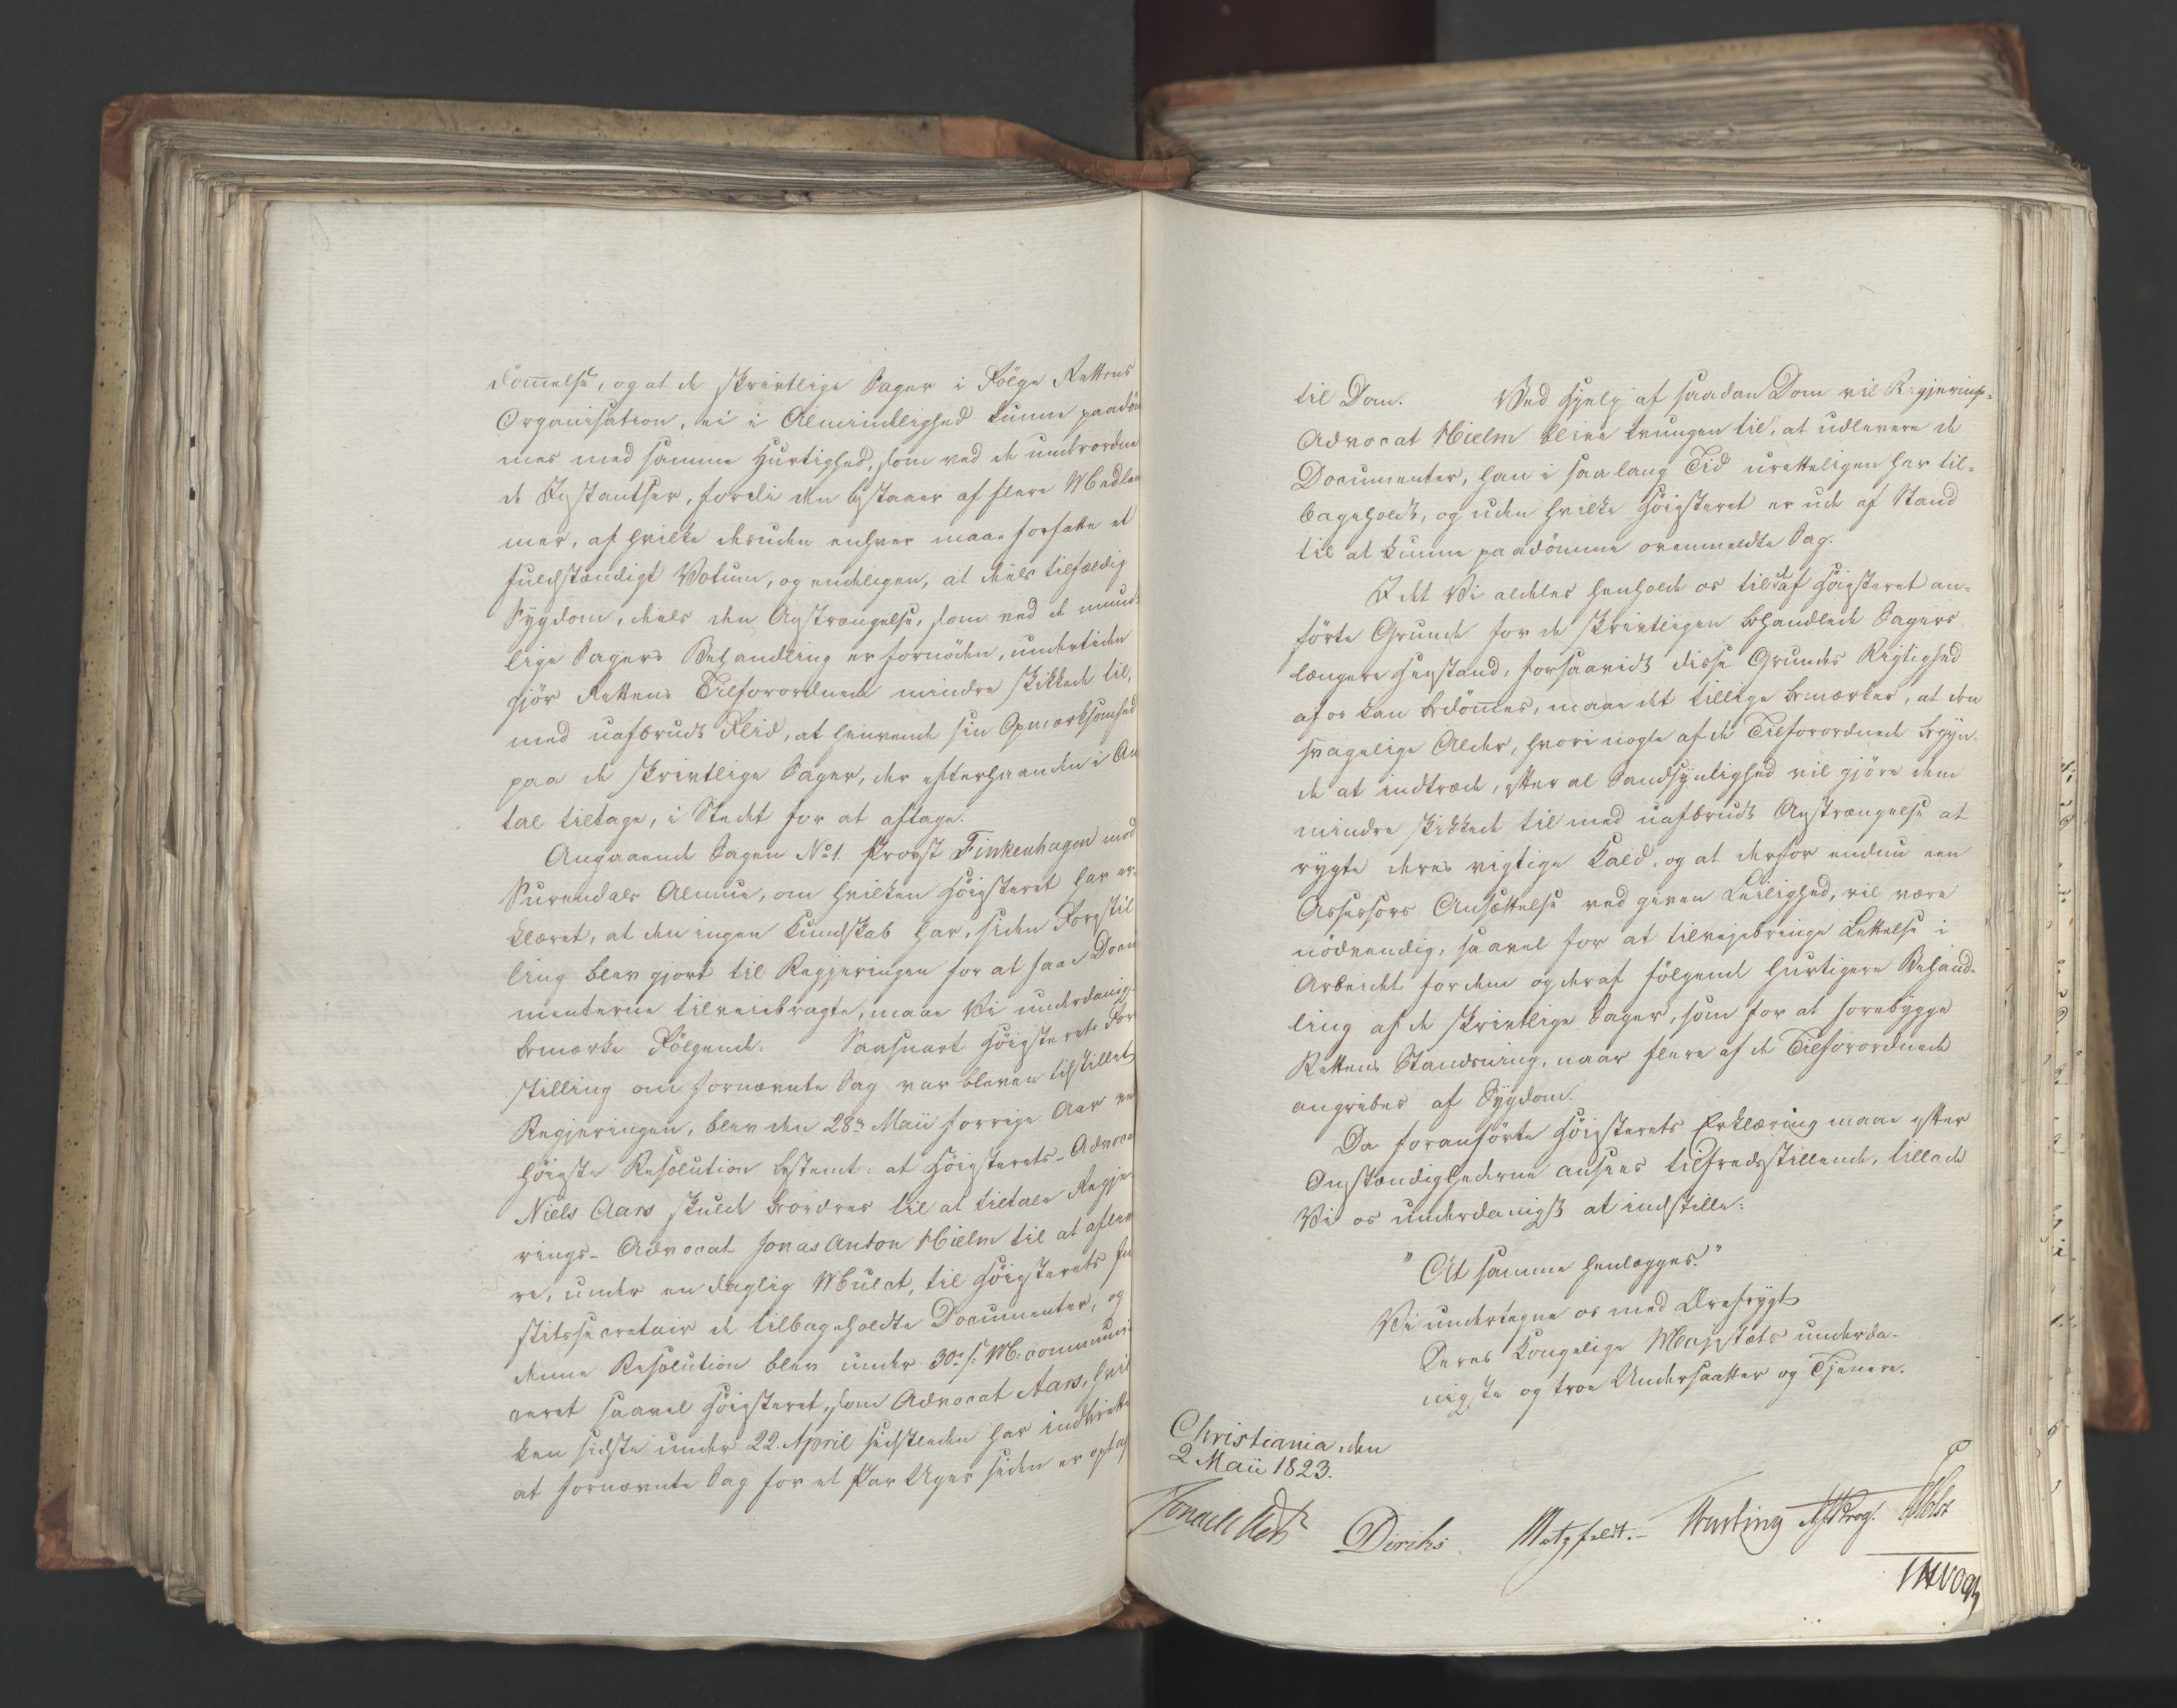 dömelse, og at de skrivtlige Sager i Fölge Rettens
Organisation, ei i Almindelighed kunne paadöm
mes med samme Hurtighed, som ved de underordne
de Instantser, fordi den bestaaer af flere Medlem
mer, af hvilke desuden enhver maae forfatte et
fuldstændigt Votum, og endeligen, at deels tilfældig
Sygdom, deels den Anstrængelse, som ved de mund-
lige Sagers Behandling er fornöden, undertiden
gjör Rettens Tilforordnede mindre skikkede til,
med uafbrudt Flid, at henvende sin Opmærksomhed
paa de skrivtlige Sager, der efterhaanden i An
tal tiltage, i Stedet for at aftage.
Angaaende Sagen No 1. Provst Finkenhagen mod
Surendals Almue, om hvilken Höiesteret har er-
klæret, at den ingen Kundskab har, siden Forestil
ling blev gjort til Regjeringen for at faae Docu
menterne tilveiebragte, maae Vi underdanigst
bemærke Fölgende: Saasnart Höiesterets For
stilling om fornævnte Sag var bleven tilstillet
Regjeringen, blev den 28de Maii forrige Aar ved
höieste Resolution bestemt: at Höiesterets-Advocat
Niels Aars skulde beordres til at tiltale Regje-
rings-Advocat Jonas Anton Hielm til at afleve
re, under en daglig Mulct, til Höiesterets Ju
stitssecretair de tilbageholdte Documenter, og
denne Resolution blev under 30te s: M: communi-
ceret saavel Höiesteret, som Advocat Aars, hvil
ken sidste under 22 April sidstleden har indberettet
at fornævnte Sag for et Par Uger siden er optaget
til Dom. Ved Hjelp af saadan Dom vil Regjerings-
Advocat Hielm blive tvungen til, at udlevere de
Documenter, han i saa lang Tid uretteligen har til-
bageholdt, og uden hvilke Höiesteret er ude af Stand
til at kunne paadömme ovenmeldte Sag.
I det Vi aldeles henholde os til de af Höiesteret an-
förte Grunde for de skrivtligen behandlede Sagers
længere Henstand, forsaavidt disse Grundes Rigtighed
af os kan bedömes, maae det tillige bemærkes, at den
svagelige Alder, hvori nogle af de Tilforordnede begyn-
de at indtræde, efter al Sandsynlighed vil gjöre dem
mindre skikkede til med uafbrudt Anstrængelse at
rygte deres vigtige Kald, og at derfor endnu een
Assessors Ansættelse ved given Leilighed, vil være
nödvendig, saavel for at tilvejebringe Lettelse i
Arbeidet for dem og deraf fölgende hurtigere Behand-
ling af de skrivtlige Sager, som for at forebygge
Rettens Standsning, naar flere af de Tilforordnede
angribes af Sygdom.
Da foranförte Höiesterets Erklæring maae efter
Omstændighederne ansees tilfredsstillende, tillade
Vi os underdanigst at indstille:
"At samme henlægges."
Vi undertegne os med Ærefrygt
Deres Kongelige Majestæts underda-
nigste og troe Undersaatter og Tjenere.
Christiania, den
2 Maii 1823.
Diriks Motzfeldt.- Krog. Holst
Vogt